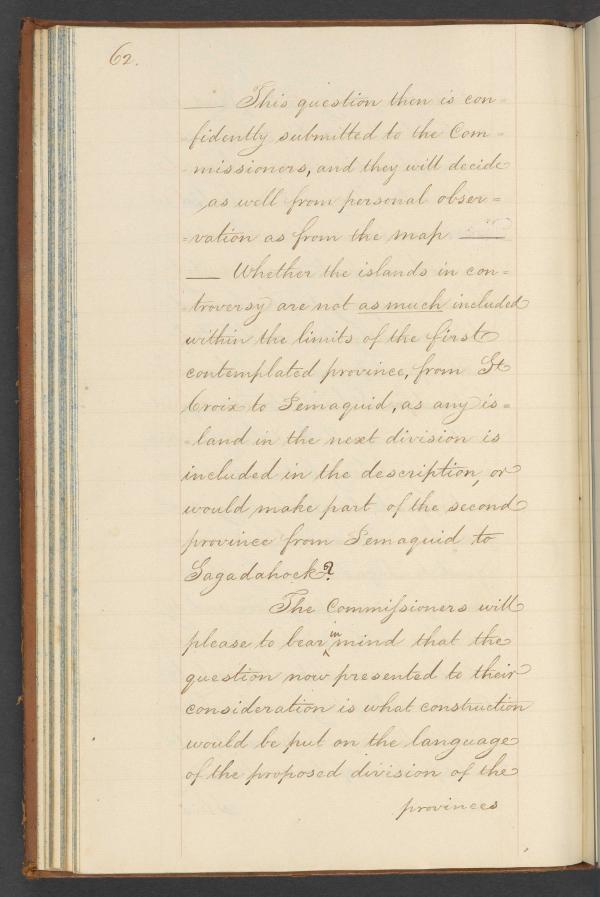 62.
___ This question then is con=
=fidently submitted to the Com=
=missioners, and they will decide
as well from personal obser=
=vation as from the map ___
___ Whether the islands in con=
troversy are not as much included
within the limits of the first
contemplated province, from St
Croix to Pemaquid, as any is=
=land in the next division is
included in the description, or
would make part of the second
province from Pemaquid to
Sagadahock?
The Commiſsioners will
please to bear ^in mind that the
question now presented to their
consideration is what construction
would be put on the language
of the proposed division of the
provinces